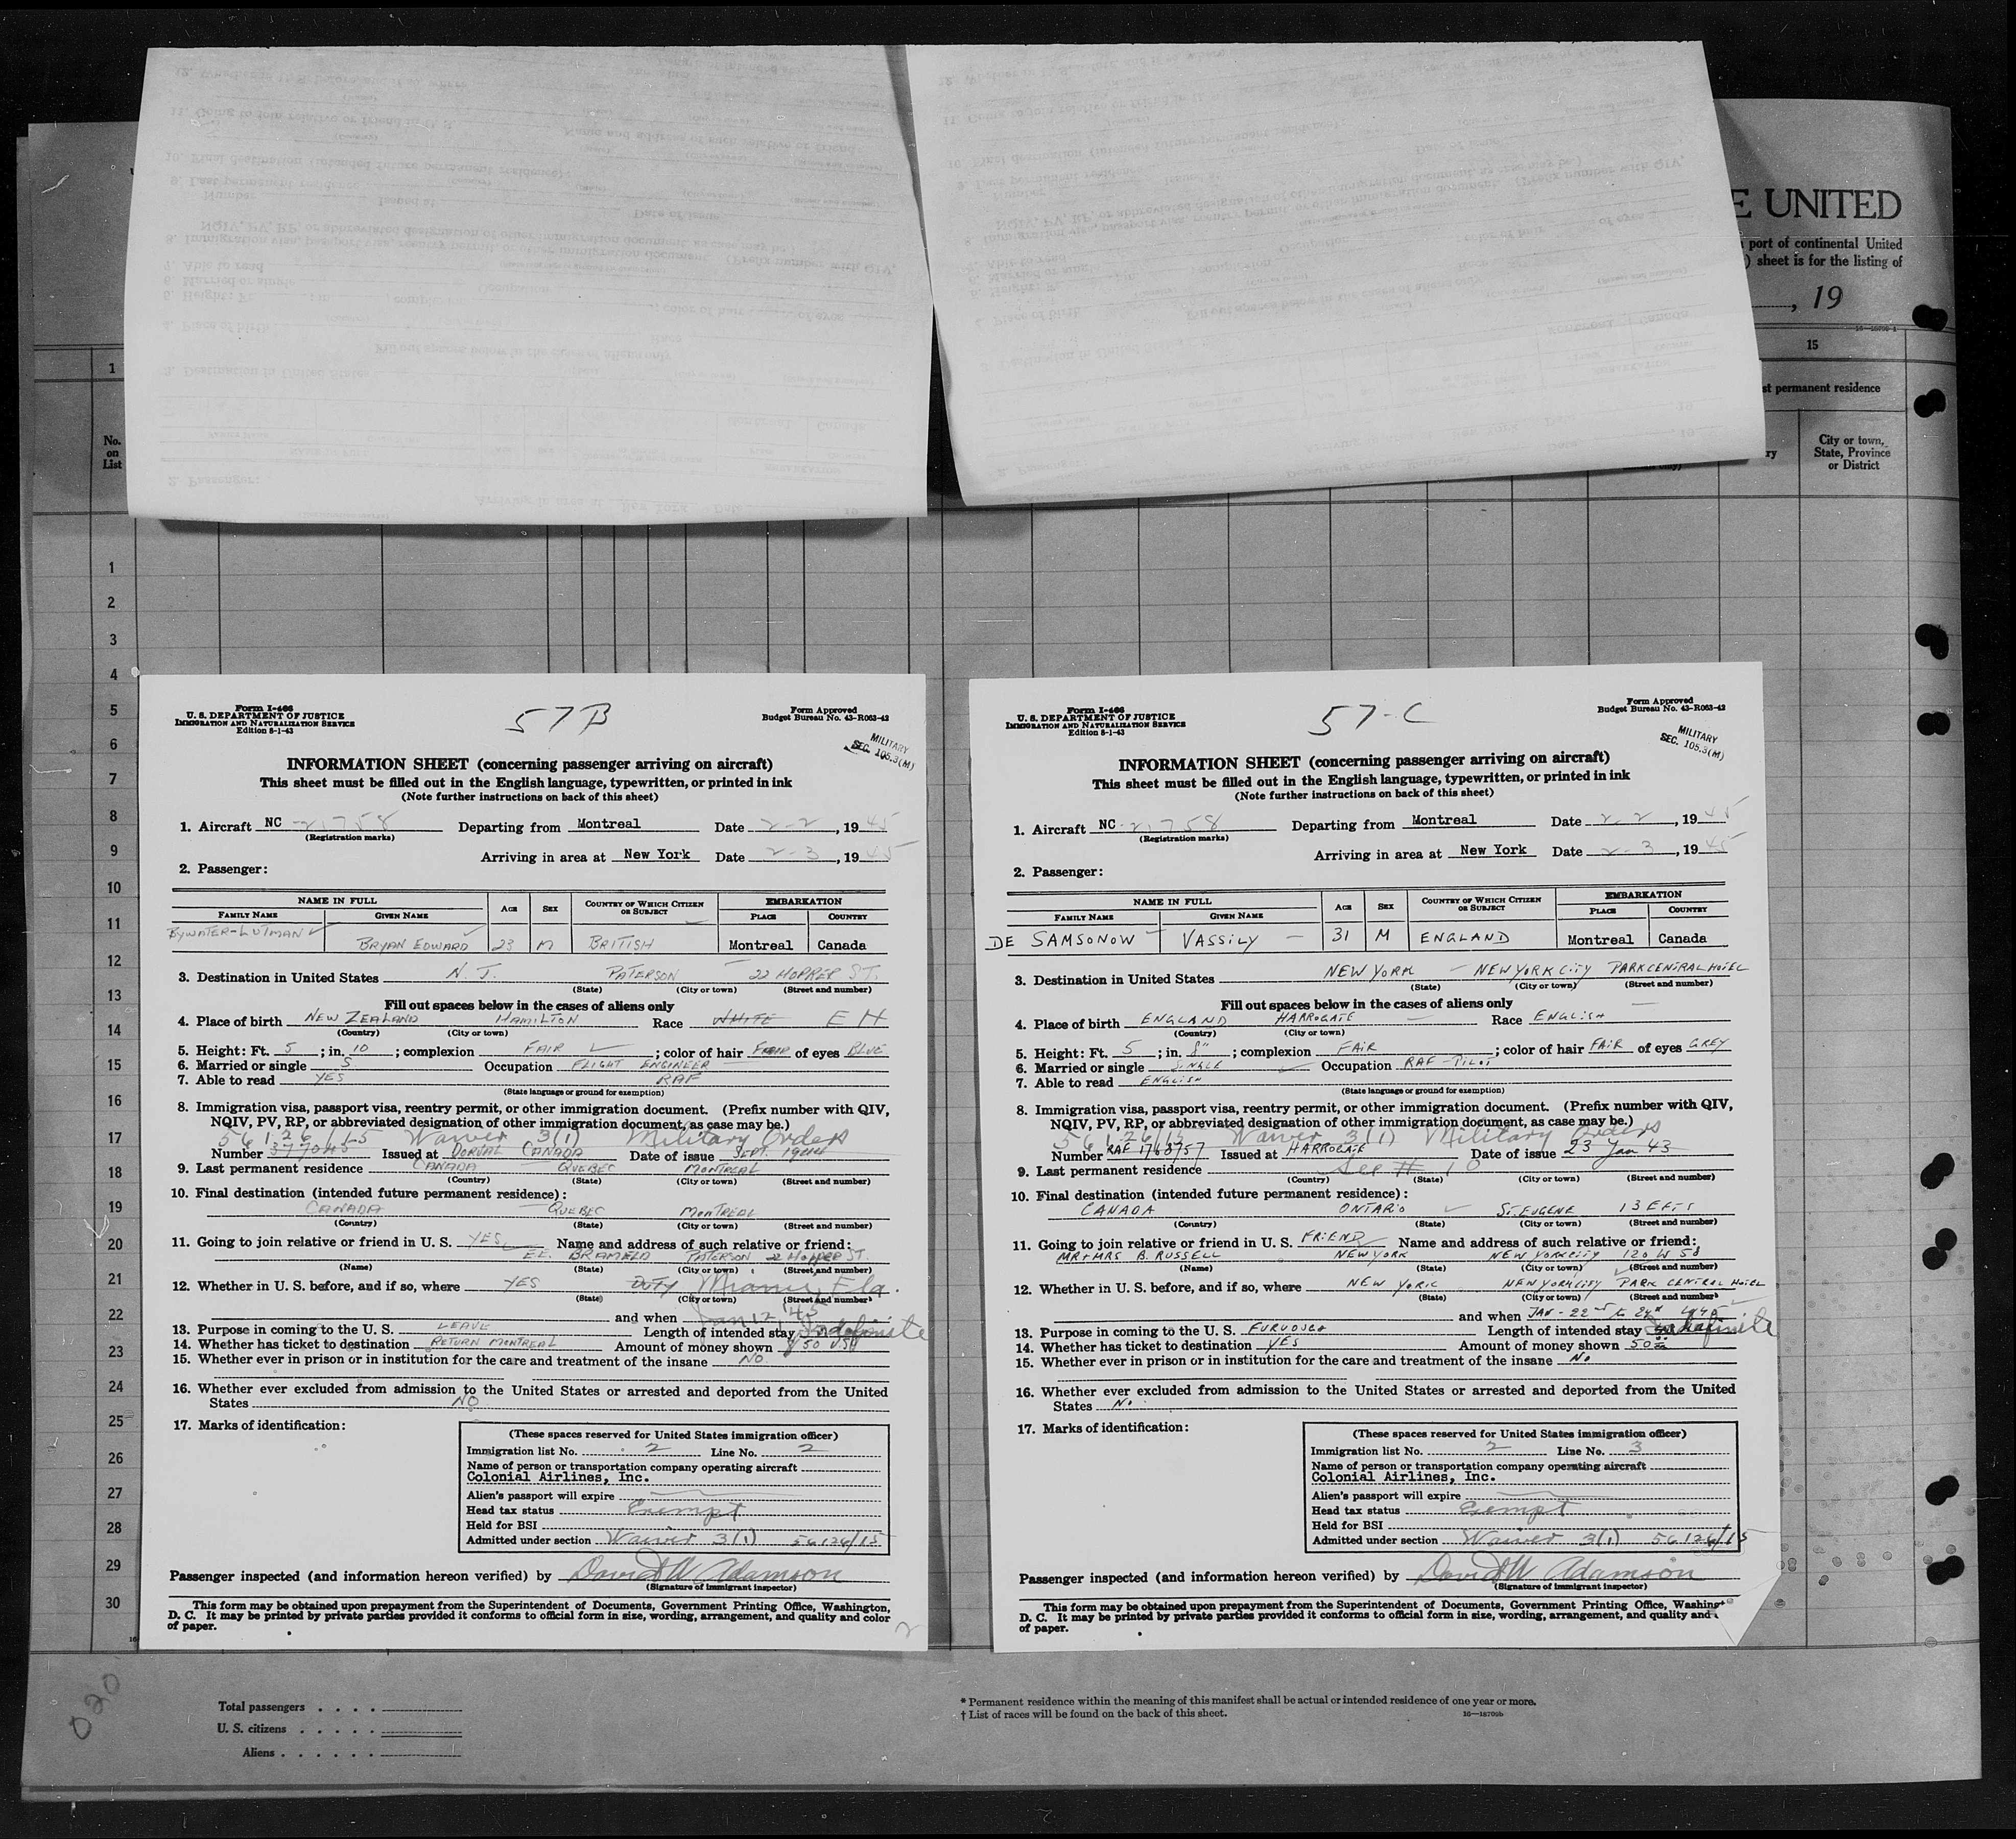 E UNITED
port of continental United
) sheet is for the listing of
, 19
16—18709-1
15
st permanent residence
No.
on
List
City or town,
State, Province
or District
1
1
2
3
4
5
6
7
8
9
10
11
12
13
14
15
16
17
18
19
20
21
22
23
24
25
26
27
28
29
30
Form I-466
U. S. DEPARTMENT OF JUSTICE
IMMIGRATION AND NATURALIZATION SERVICE
Edition 8-1-43
57B
Form Approved
Budget Bureau No. 43-R063-42
MILITARY
SEC. 105.3(M)
INFORMATION SHEET (concerning passenger arriving on aircraft)
This sheet must be filled out in the English language, typewritten, or printed in ink
(Note further instructions on back of this sheet)
1. Aircraft NC -21758 Departing from Montreal Date 2-2, 1945
(Registration marks)
Arriving in area at New York Date 2-3, 1945
2. Passenger:
NAME IN FULL AGE SEX COUNTRY OF WHICH CITIZEN OR SUBJECT EMBARKATION
FAMILY NAME GIVEN NAME PLACE COUNTRY
BYWATER-LUTMAN BRYAN EDWARD 23 M BRITISH Montreal Canada
3. Destination in United States N. J. PATERSON 22 HOPPER ST.
(State) (City or town) (Street and number)
Fill out spaces below in the cases of aliens only
4. Place of birth NEW ZEALAND HAMILTON Race WHITE EH
(Country) (City or town)
5. Height: Ft. 5; in. 10; complexion FAIR; color of hair FAIR of eyes BLUE
6. Married or single S. Occupation FLIGHT ENGINEER
7. Able to read YES RAF
(State language or ground for exemption)
8. Immigration visa, passport visa, reentry permit, or other immigration document. (Prefix number with QIV,
NQIV, PV, RP, or abbreviated designation of other immigration document, as case may be.)
56126/15 Waiver 3(1) Military Orders
Number 377045 Issued at DORVAL CANADA Date of issue SEPT. 1944
9. Last permanent residence CANADA QUEBEC MONTREAL
(Country) (State) (City or town) (Street and number)
10. Final destination (intended future permanent residence):
CANADA QUEBEC MONTREAL
(Country) (State) (City or town) (Street and number)
11. Going to join relative or friend in U. S. YES Name and address of such relative or friend:
E.E. BRAMELD PATERSON 22 HOPPER ST.
(Name) (State) (City or town) (Street and number)
12. Whether in U. S. before, and if so, where YES DUTY Miami, Fla.
(State) (City or town) (Street and number)
and when Jan 12, '45
13. Purpose in coming to the U. S. LEAVE Length of intended stay Indefinite
14. Whether has ticket to destination RETURN MONTREAL Amount of money shown $50 USA
15. Whether ever in prison or in institution for the care and treatment of the insane NO.
16. Whether ever excluded from admission to the United States or arrested and deported from the United
States NO
17. Marks of identification:
(These spaces reserved for United States immigration officer)
Immigration list No. 2 Line No. 2
Name of person or transportation company operating aircraft
Colonial Airlines, Inc.
Alien's passport will expire
Head tax status Exempt
Held for BSI
Admitted under section Waiver 3(1) 56126/15
Passenger inspected (and information hereon verified) by David W Adamson
(Signature of immigrant inspector)
This form may be obtained upon prepayment from the Superintendent of Documents, Government Printing Office, Washington,
D. C. It may be printed by private parties provided it conforms to official form in size, wording, arrangement, and quality and color
of paper.
2
Form I-466
U. S. DEPARTMENT OF JUSTICE
IMMIGRATION AND NATURALIZATION SERVICE
Edition 8-1-43
57-C
Form Approved
Budget Bureau No. 43-R063-42
MILITARY
SEC. 105.3(M)
INFORMATION SHEET (concerning passenger arriving on aircraft)
This sheet must be filled out in the English language, typewritten, or printed in ink
(Note further instructions on back of this sheet)
1. Aircraft NC -21758 Departing from Montreal Date 2-2, 1945
(Registration marks)
Arriving in area at New York Date 2-3, 1945
2. Passenger:
NAME IN FULL AGE SEX COUNTRY OF WHICH CITIZEN OR SUBJECT EMBARKATION
FAMILY NAME GIVEN NAME PLACE COUNTRY
DE SAMSONOW VASSILY 31 M ENGLAND Montreal Canada
3. Destination in United States NEW YORK NEW YORK CITY PARK CENTRAL HOTEL
(State) (City or town) (Street and number)
Fill out spaces below in the cases of aliens only
4. Place of birth ENGLAND HARROGATE Race ENGLISH
(Country) (City or town)
5. Height: Ft. 5; in. 8"; complexion FAIR; color of hair FAIR of eyes GREY
6. Married or single SINGLE Occupation RAF - PILOT
7. Able to read ENGLISH
(State language or ground for exemption)
8. Immigration visa, passport visa, reentry permit, or other immigration document. (Prefix number with QIV,
NQIV, PV, RP, or abbreviated designation of other immigration document, as case may be.)
56126/15 Waiver 3(1) Military Orders
Number RAF 1768757 Issued at HARROGATE Date of issue 23 Jan 43
9. Last permanent residence See # 10
(Country) (State) (City or town) (Street and number)
10. Final destination (intended future permanent residence):
CANADA ONTARIO ST. EUGENE 13 EFTS
(Country) (State) (City or town) (Street and number)
11. Going to join relative or friend in U. S. FRIEND Name and address of such relative or friend:
MR+MRS B. RUSSELL NEW YORK NEW YORK CITY 120 W 58
(Name) (State) (City or town) (Street and number)
12. Whether in U. S. before, and if so, where NEW YORK NEW YORK CITY PARK CENTRAL HOTEL
(State) (City or town) (Street and number)
and when JAN - 22nd to 24th
13. Purpose in coming to the U. S. Length of intended stay Indefinite
14. Whether has ticket to destination YES Amount of money shown 50
15. Whether ever in prison or in institution for the care and treatment of the insane No
16. Whether ever excluded from admission to the United States or arrested and deported from the United
States No
17. Marks of identification:
(These spaces reserved for United States immigration officer)
Immigration list No. 2 Line No. 3
Name of person or transportation company operating aircraft
Colonial Airlines, Inc.
Alien's passport will expire
Head tax status Exempt
Held for BSI
Admitted under section Waiver 3(1) 56126/15
Passenger inspected (and information hereon verified) by David W Adamson
(Signature of immigrant inspector)
This form may be obtained upon prepayment from the Superintendent of Documents, Government Printing Office, Washing
D. C. It may be printed by private parties provided it conforms to official form in size, wording, arrangement, and quality and
of paper.
020
Total passengers
U. S. citizens
Aliens
* Permanent residence within the meaning of this manifest shall be actual or intended residence of one year or more.
† List of races will be found on the back of this sheet.
16—18709b